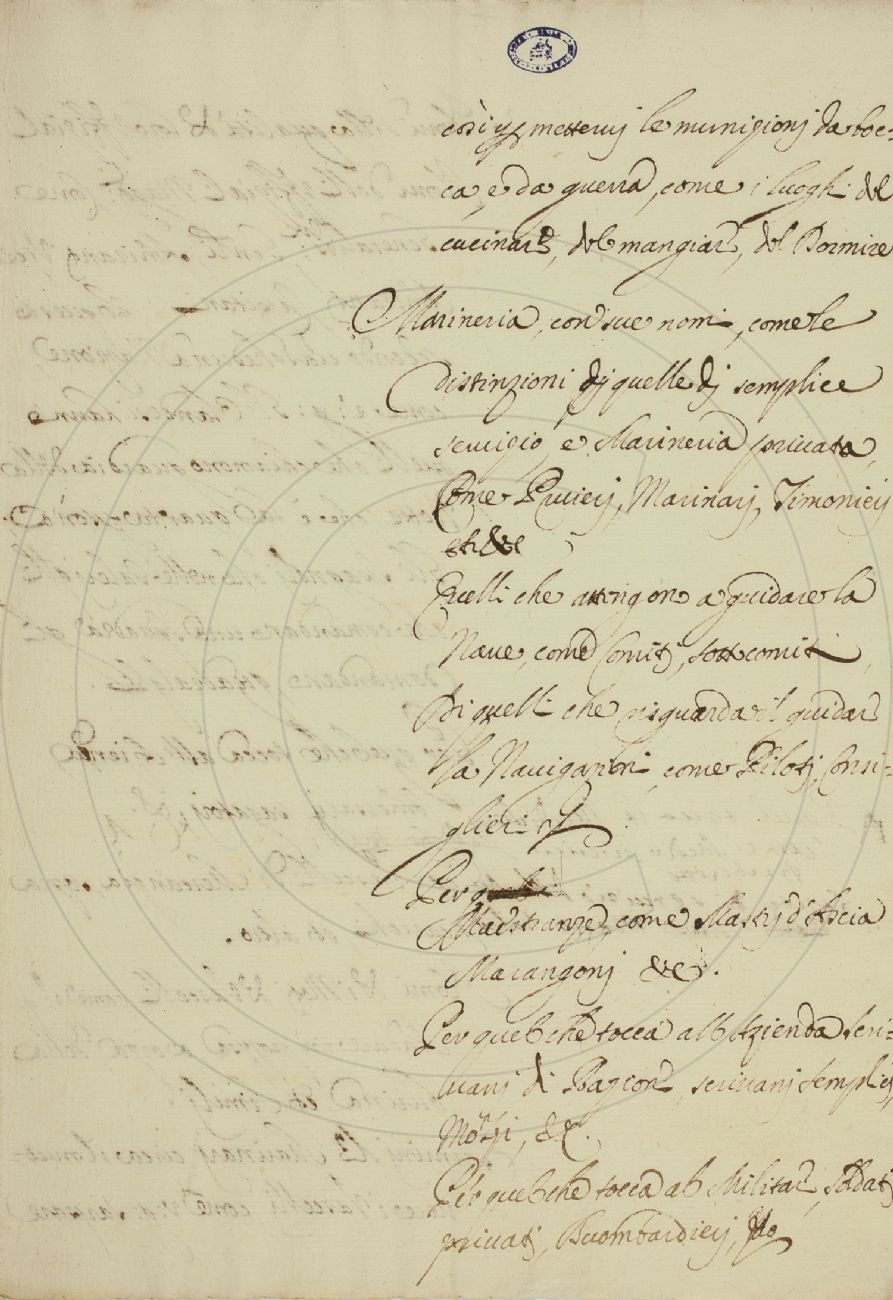 così per mettervj le munizionj da boc-
ca, e da guerra, come i luoghi del
cucinare, del mangiare, del Dormire
Marineria, con sue nomi, come le
distinzioni dj quelle dj semplice
servigio, e Marineria privata,
Come Marinarj, Timonierj
&c
Quelli che attengono a guidare la
Nave, come Comitj, sottcomiti
Di quelli che risguarda il guidar
la Navigazioni, come Pilotj, Consi-
glieri
Per
Maestranze, come Mastrj d'Ascia
Marangonj &c.
Per quel che tocca all'Azienda scri-
vanj di Razione, scrivanj semplicj
&c.
Per quel che tocca al Militare, soldatj
privatj, Buombardierj,